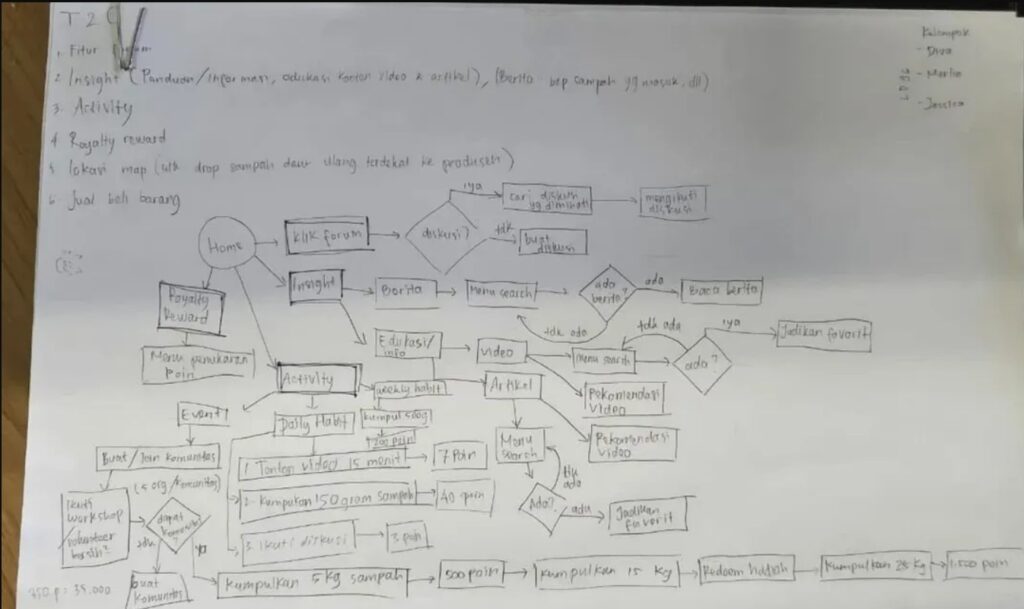 T2
1. Fitur
2. Insight (Panduan/informasi, edukasi konten video & artikel), (Berita brp sampah yg masuk, dll)
3. Activity
4. Royalty reward
5. lokasi map (utk drop sampah daur ulang terdekat ke produsen)
6. Jual beli barang
Kelompok
- Diva
- Marlio
- Jessica
Home
klik forum
diskusi?
iya
cari diskusi yg diminati
mengikuti diskusi
tdk
buat diskusi
Insight
Berita
Menu search
ada berita?
ada
Baca berita
tdk ada
Royalty Reward
Menu penukaran poin
Edukasi/info
video
menu search
tdk ada
ada?
iya
Jadikan favorit
Rekomendasi video
Activity
weekly habit
kumpul 500g
200 poin
Artikel
Rekomendasi video
Menu search
tdk ada
Ada?
ada
Jadikan favorit
Event
Daily Habit
Buat/Join komunitas
(5 org/komunitas)
1. Tonton video 15 menit
7 Poin
2. Kumpulkan 150 gram sampah
40 poin
3. Ikuti diskusi
3 poin
Ikuti workshop/volunteer bersih?
dapat komunitas?
tdk
ya
buat komunitas
kumpulkan 5 kg sampah
500 poin
kumpulkan 15 kg
Redeem hadiah
Kumpulkan 25 kg
1.500 poin
350 p : 35.000